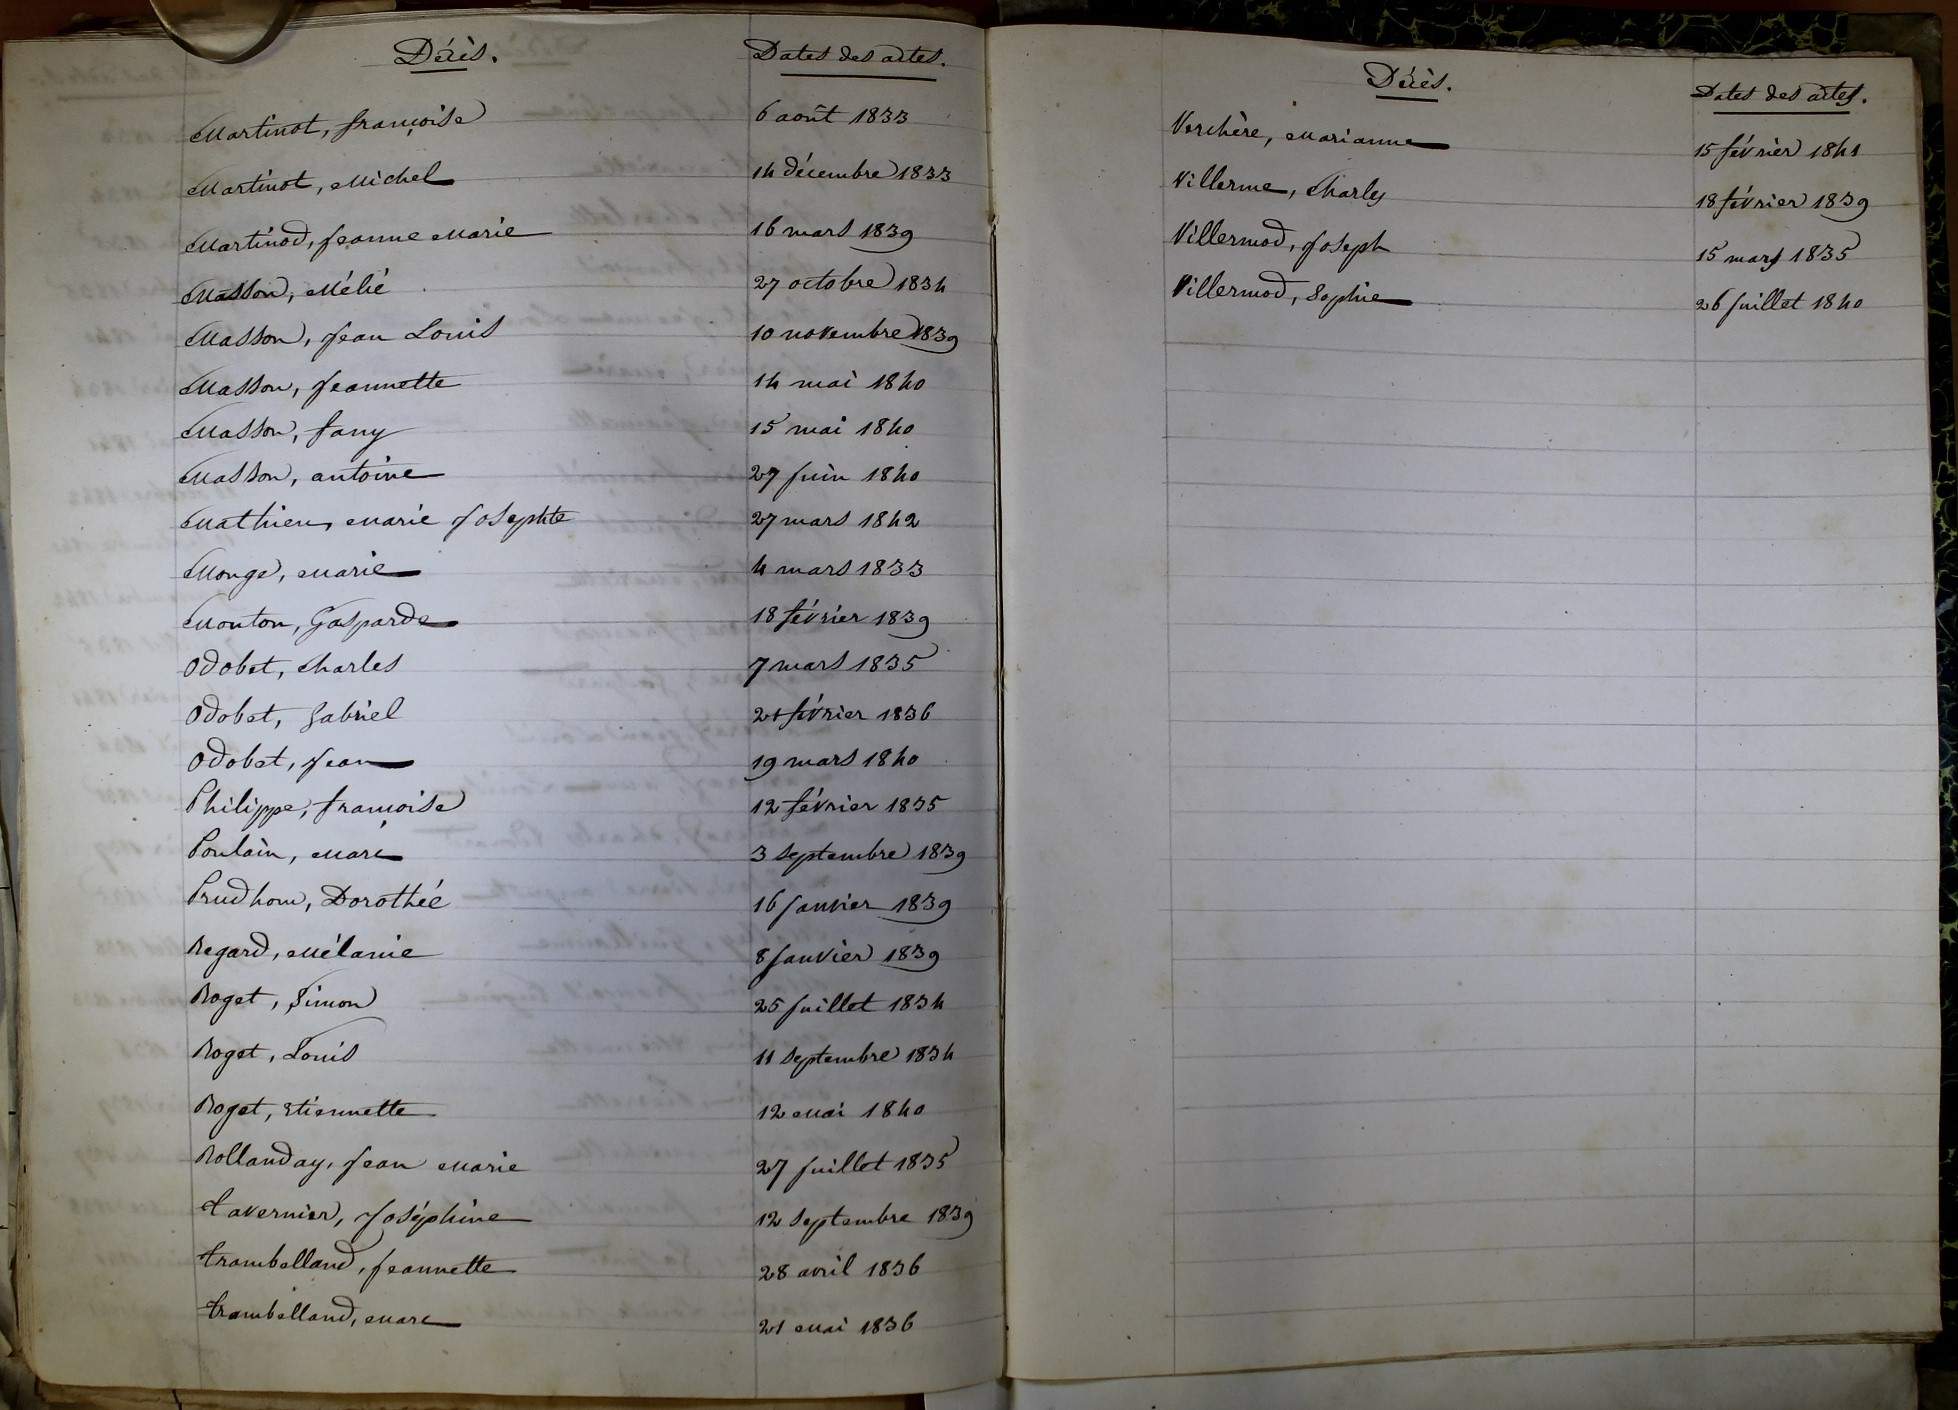 Décès.
Dates des actes.
Martinot, françoise 6 août 1833
Martinot, Michel 14 décembre 1833
Martinod, Jeanne Marie 16 mars 1839
Masson, Mélie 27 octobre 1834
Masson, Jean Louis 10 novembre 1839
Masson, Jeannette 14 mai 1840
Masson, fany 15 mai 1840
Masson, antoine 27 Juin 1840
Mathieu, Marie Josephte 27 mars 1842
Monge, Marie 4 mars 1833
Mouton, Gasparde 18 février 1839
Odobet, Charles 7 mars 1835
Odobet, Gabriel 21 février 1836
Odobet, Jean 19 mars 1840
Philippe, françoise 12 février 1835
Poulain, Marie 3 septembre 1839
Prudhom, Dorothée 16 Janvier 1839
Regard, Mélanie 8 Janvier 1839
Roget, Simon 25 Juillet 1834
Roget, Louis 11 septembre 1834
Roget, Etiennette 12 Mai 1840
Rollanday, Jean Marie 27 Juillet 1835
Tavernier, Joséphine 12 septembre 1839
Trambelland, Jeannette 28 avril 1836
Trambelland, Marc 21 Mai 1836
Décès.
Dates des actes.
Verchère, Marianne 15 février 1841
Villerme, Charles 18 février 1839
Villermod, Joseph 15 mars 1835
Villermod, Sophie 26 Juillet 1840